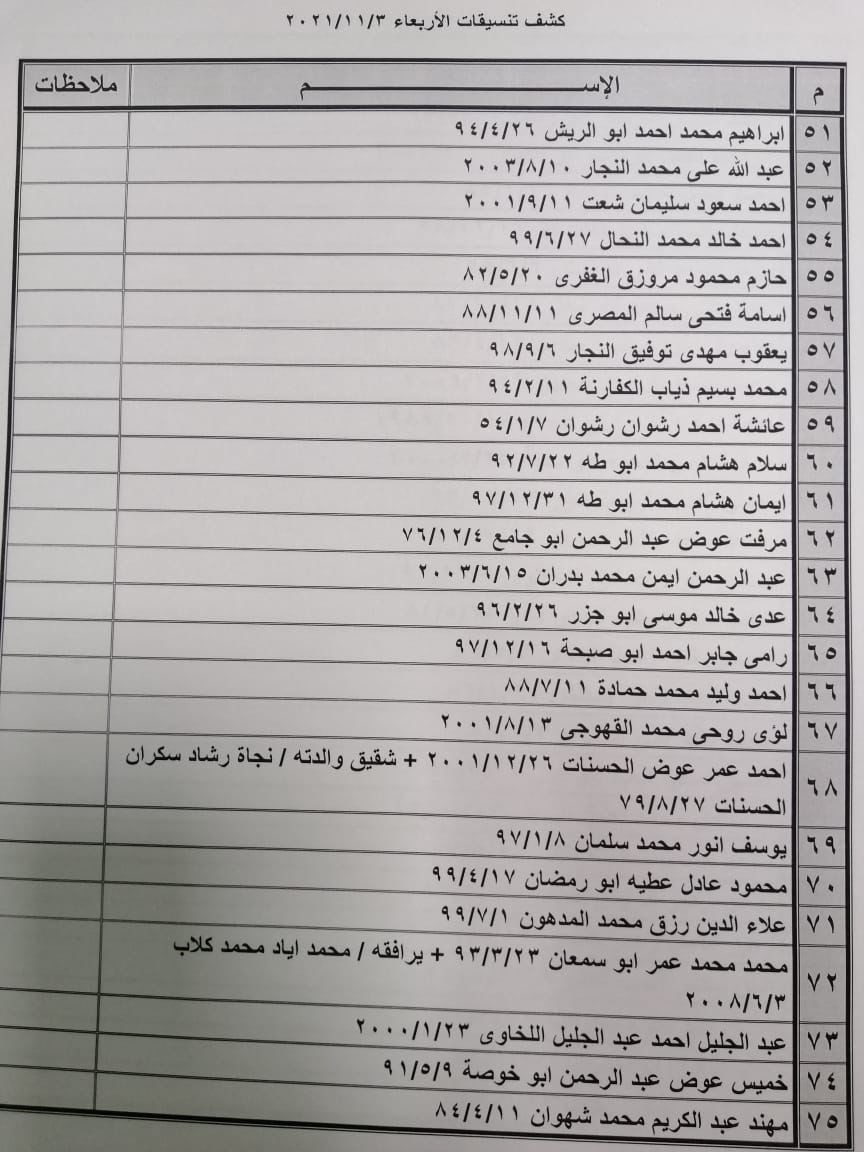 كشف تنسيقات الأربعاء ٢٠٢١/١١/٣
م الإســــــــــــم ملاحظات
٥١ ابراهيم محمد احمد ابو الريش ٩٤/٤/٢٦
٥٢ عبد الله على محمد النجار ٢٠٠٣/٨/١٠
٥٣ احمد سعود سليمان شعت ٢٠٠١/٩/١١
٥٤ احمد خالد محمد النحال ٩٩/٦/٢٧
٥٥ حازم محمود مرزوق الغفرى ٨٢/٥/٢٠
٥٦ اسامة فتحى سالم المصرى ٨٨/١١/١١
٥٧ يعقوب مهدى توفيق النجار ٩٨/٩/٦
٥٨ محمد بسيم ذياب الكفارنة ٩٤/٢/١١
٥٩ عائشة احمد رشوان رشوان ٥٤/١/٧
٦٠ سلام هشام محمد ابو طه ٩٢/٧/٢٢
٦١ ايمان هشام محمد ابو طه ٩٧/١٢/٣١
٦٢ مرفت عوض عبد الرحمن ابو جامع ٧٦/١٢/٤
٦٣ عبد الرحمن ايمن محمد بدران ٢٠٠٣/٦/١٥
٦٤ عدى خالد موسى ابو جزر ٩٦/٢/٢٦
٦٥ رامى جابر احمد ابو صبحة ٩٧/١٢/١٦
٦٦ احمد وليد محمد حمادة ٨٨/٧/١١
٦٧ لؤى روحى محمد القهوجى ٢٠٠١/٨/١٣
٦٨ احمد عمر عوض الحسنات ٢٠٠١/١٢/٢٦ + شقيق والدته / نجاة رشاد سكران
الحسنات ٧٩/٨/٢٧
٦٩ يوسف انور محمد سلمان ٩٧/١/٨
٧٠ محمود عادل عطيه ابو رمضان ٩٩/٤/١٧
٧١ علاء الدين رزق محمد المدهون ٩٩/٧/١
٧٢ محمد محمد عمر ابو سمعان ٩٣/٣/٢٣ + يرافقه / محمد اياد محمد كلاب
٢٠٠٨/٦/٣
٧٣ عبد الجليل احمد عبد الجليل اللخاوى ٢٠٠٠/١/٢٣
٧٤ خميس عوض عبد الرحمن ابو خوصة ٩١/٥/٩
٧٥ مهند عبد الكريم محمد شهوان ٨٤/٤/١١